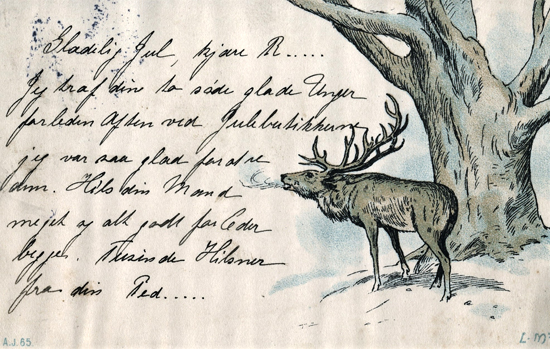 Glædelig Jul, kjære R.....
Jeg traf dine to søde glade Unger
forleden Aften ved Julebutikkerne
jeg var saa glad for at se
dem. Hils din Mand
meget og alt godt for Eder
begge. Tusinde Hilsner
fra din Ped.....
A.J. 65.